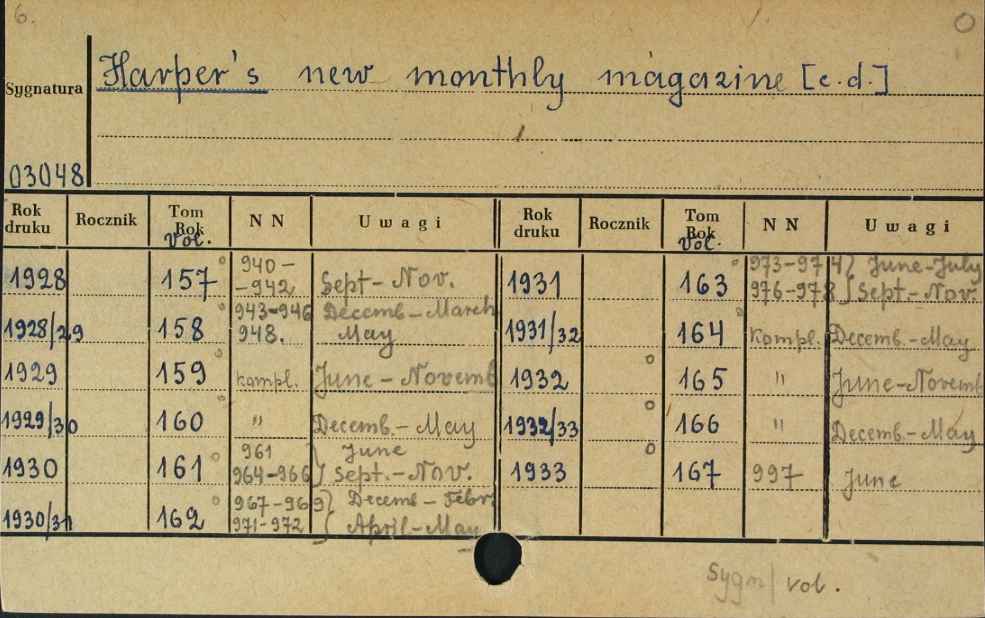 6.
Sygnatura Harper's new monthly magazine [c.d.]
03048
Rok druku Rocznik Tom Rok Vol. NN Uwagi Rok druku Rocznik Tom Rok Vol. NN Uwagi
1928 157 940-942 Sept-Nov. 1931 163 973-974 } June-July 976-978 } Sept-Nov.
1928/29 158 943-946 948. Decemb-March May 1931/32 164 kompl. Decemb.-May
1929 159 kompl. June-Novemb 1932 165 " June-Novemb
1929/30 160 " Decemb.-May 1932/33 166 " Decemb-May
1930 161 961 964-966 } June Sept.-Nov. 1933 167 997 June
1930/31 162 967-969 971-972 } Decemb-Febr. April-May
Sygn/ vol.